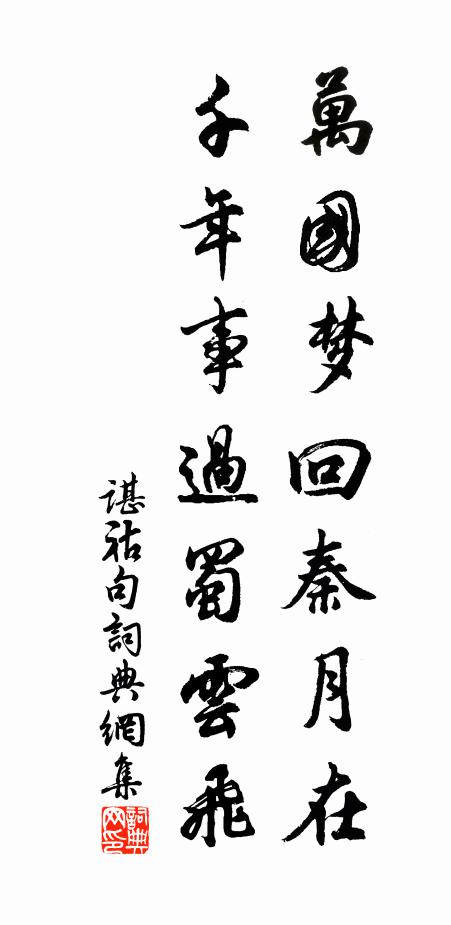 萬國梦回秦月在
千年事過蜀雲飛
諶祜句詞典網集
詞典网印